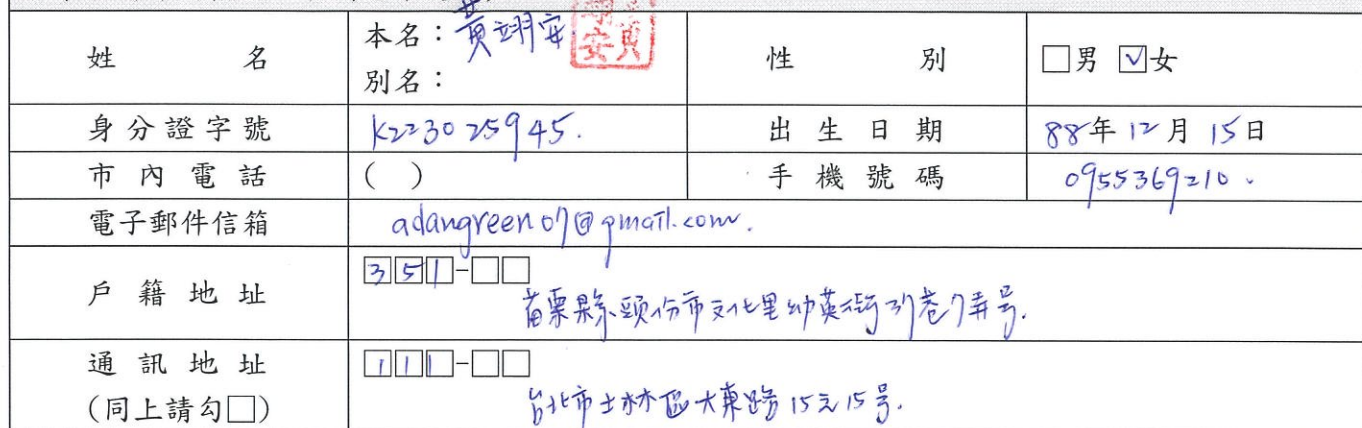 姓名 本名：黃翊安 性別 □男 ☑女
別名：
身分證字號 K223025945. 出生日期 88年12月15日
市內電話 ( ) 手機號碼 0955369210.
電子郵件信箱 adangreen07@gmail.com.
戶籍地址 351-□□
苗栗縣頭份市文化里幼英街37巷7弄号.
通訊地址 111-□□
(同上請勾□) 台北市士林區大東路15之15号.